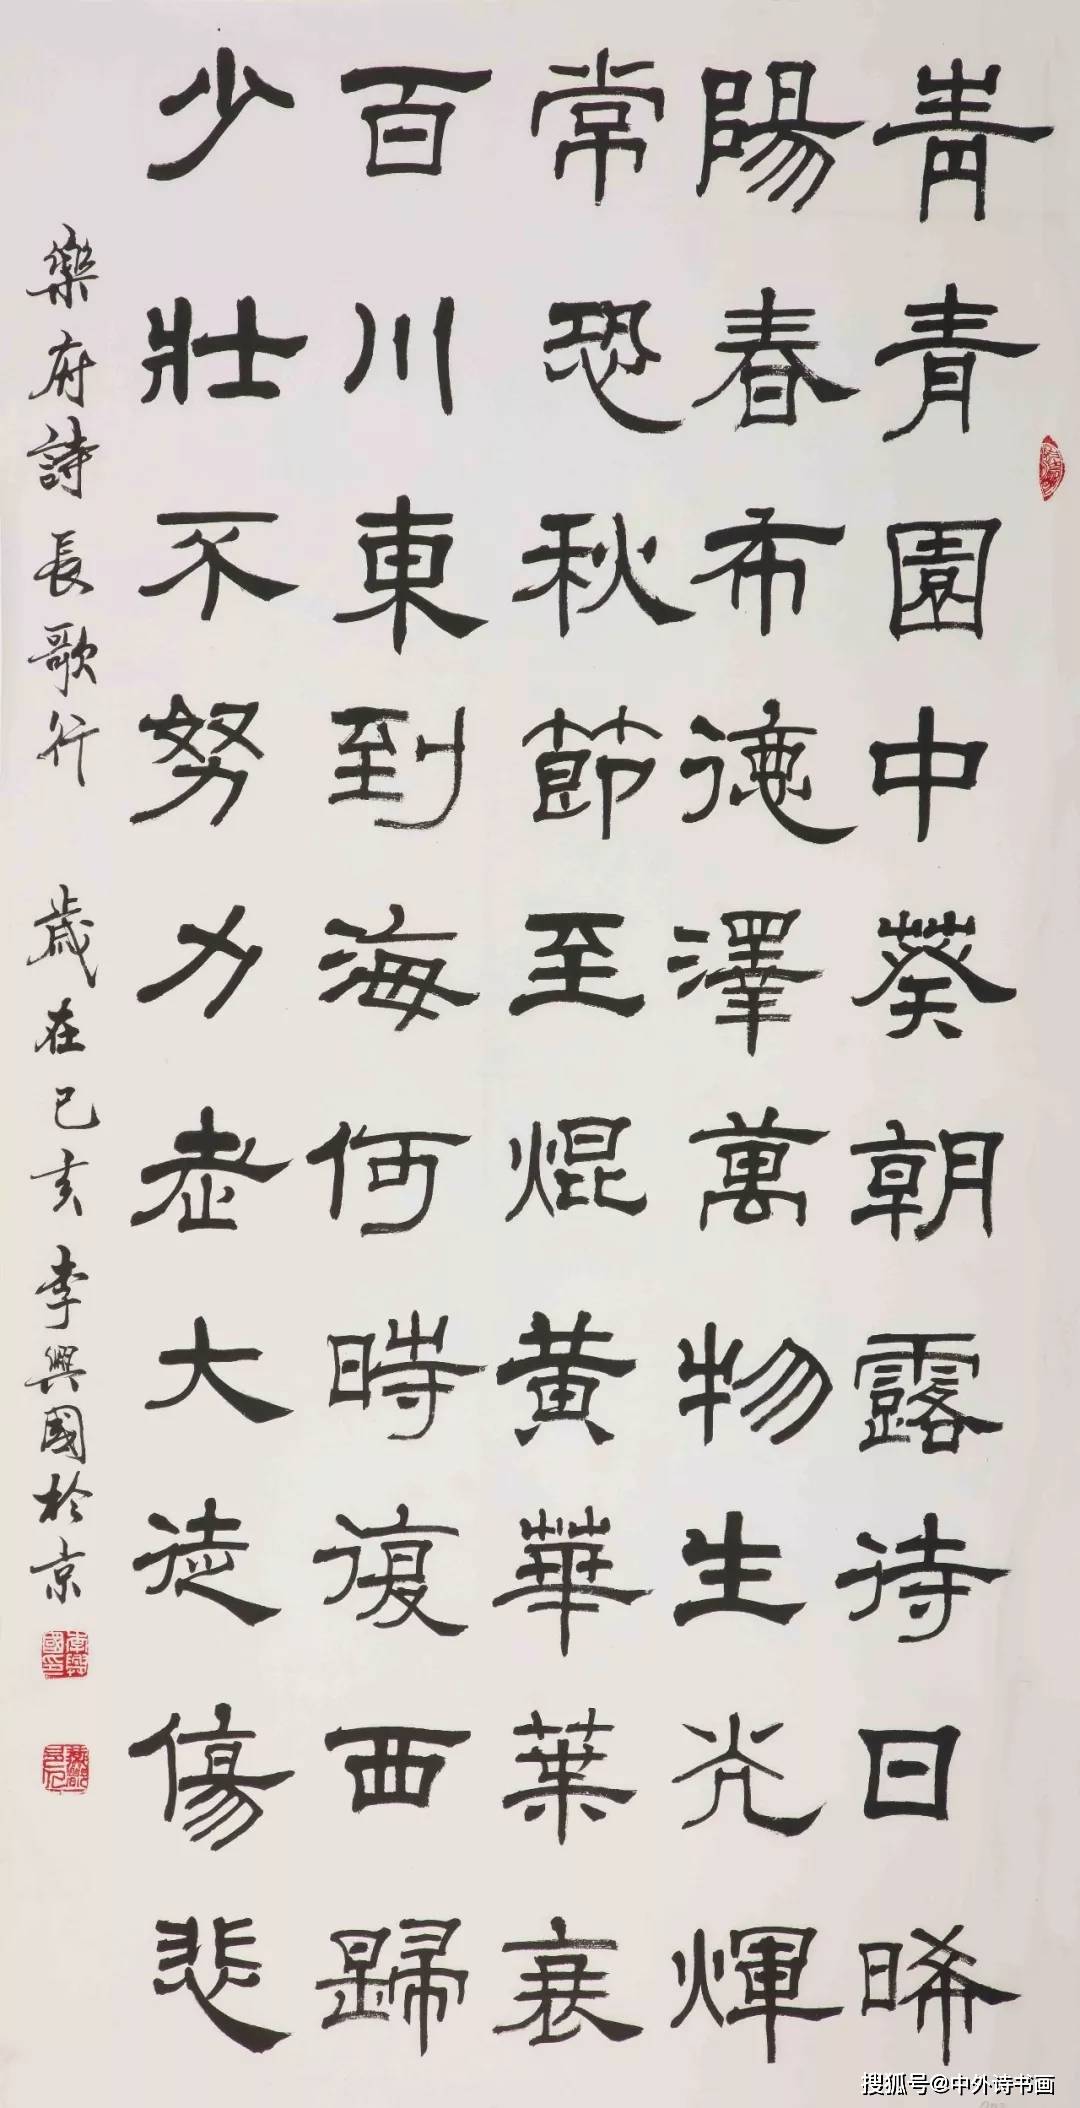 青青園中葵朝露待日晞
陽春布德澤萬物生光煇
常恐秋節至焜黃華葉衰
百川東到海何時復西歸
少壯不努力老大徒傷悲
樂府詩長歌行 歲在己亥 李興國於京
李興國印
搜狐号@中外诗书画